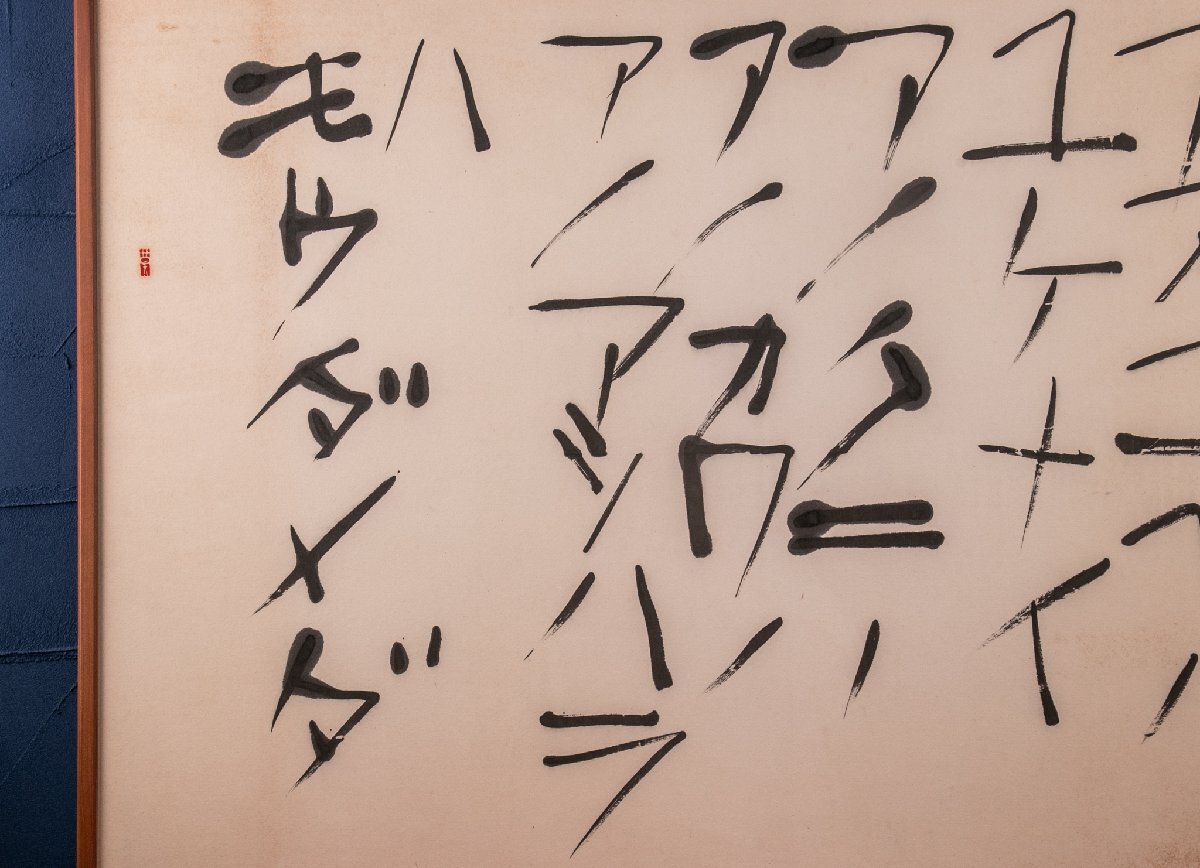 ユケナイ
アノクニノ
アノカワノ
アノマツハラ
ハ
モウダメダ